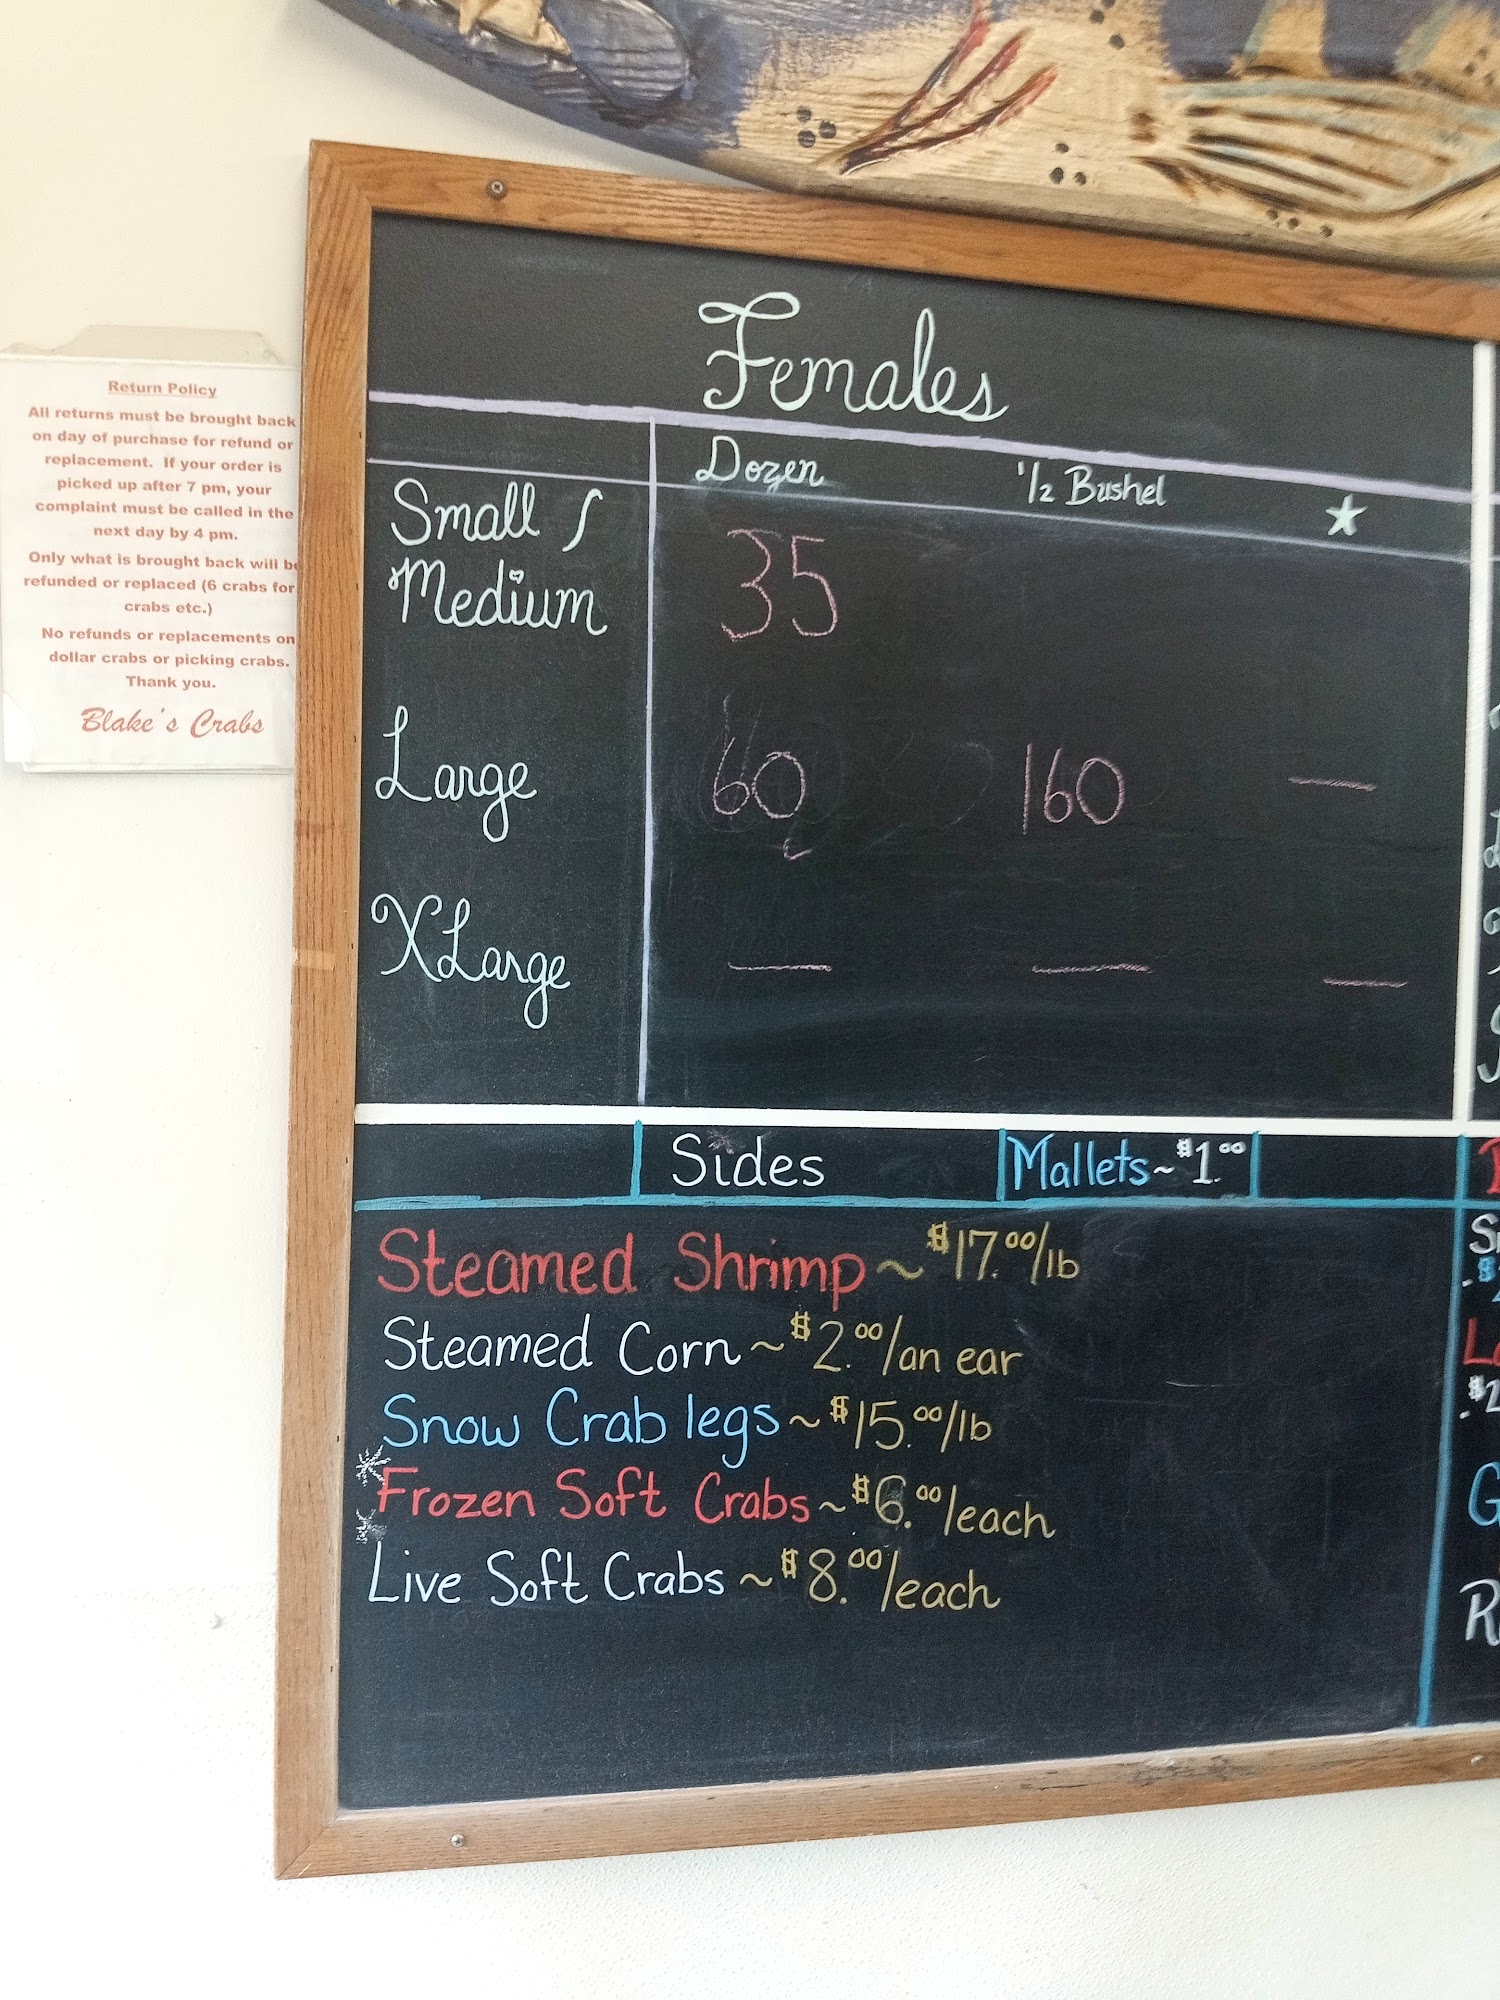 Return Policy
All returns must be brought back
on day of purchase for refund or
replacement. If your order is
picked up after 7 pm, your
complaint must be called in the
next day by 4 pm.
Only what is brought back will be
refunded or replaced (6 crabs for
crabs etc.)
No refunds or replacements on
dollar crabs or picking crabs.
Thank you.
Blake's Crabs
Females
Dozen 1/2 Bushel ★
Small /
Medium 35
Large 60 160 —
XLarge — — —
Sides Mallets~$1.00
Steamed Shrimp ~ $17.00/lb
Steamed Corn ~ $2.00/an ear
Snow Crab legs ~ $15.00/lb
Frozen Soft Crabs ~ $6.00/each
Live Soft Crabs ~ $8.00/each